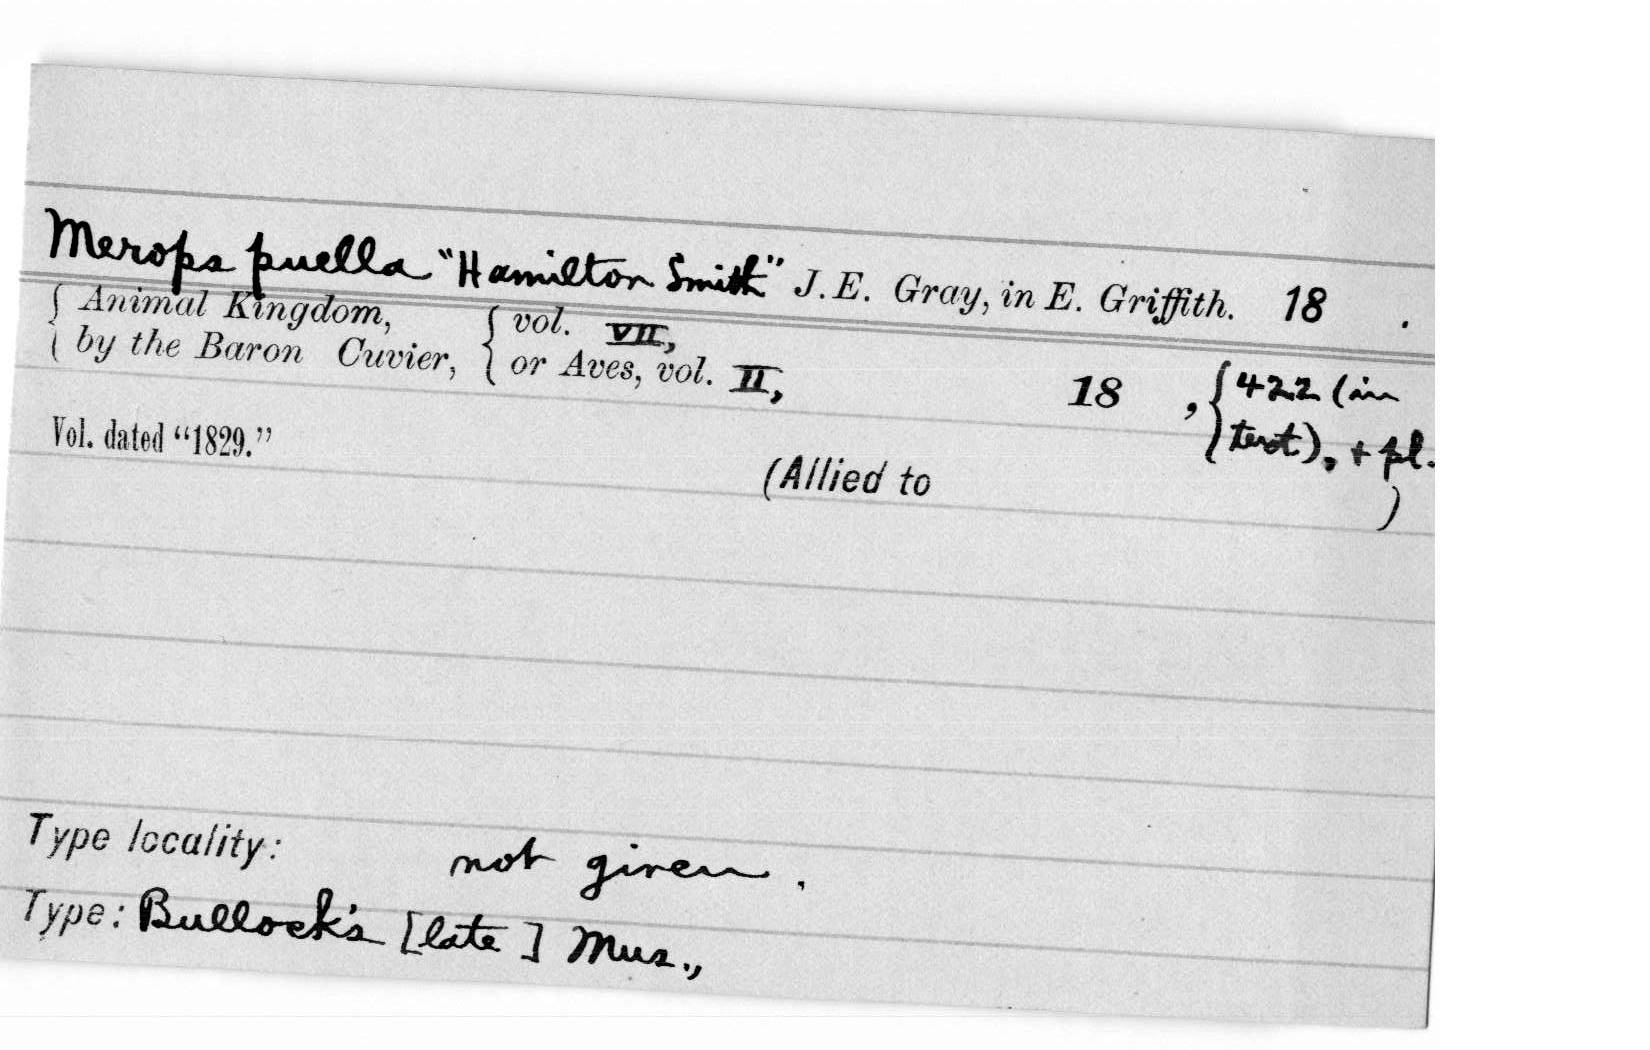 Merops puella "Hamilton Smith" J.E. Gray, in E. Griffith. 18 .
{ Animal Kingdom, { vol. VII,
{ by the Baron Cuvier, { or Aves, vol. II, 18 , { 422 (in
Vol. dated "1829." text), + pl.
(Allied to )
Type locality: not given.
Type: Bullock's [late] Mus.,